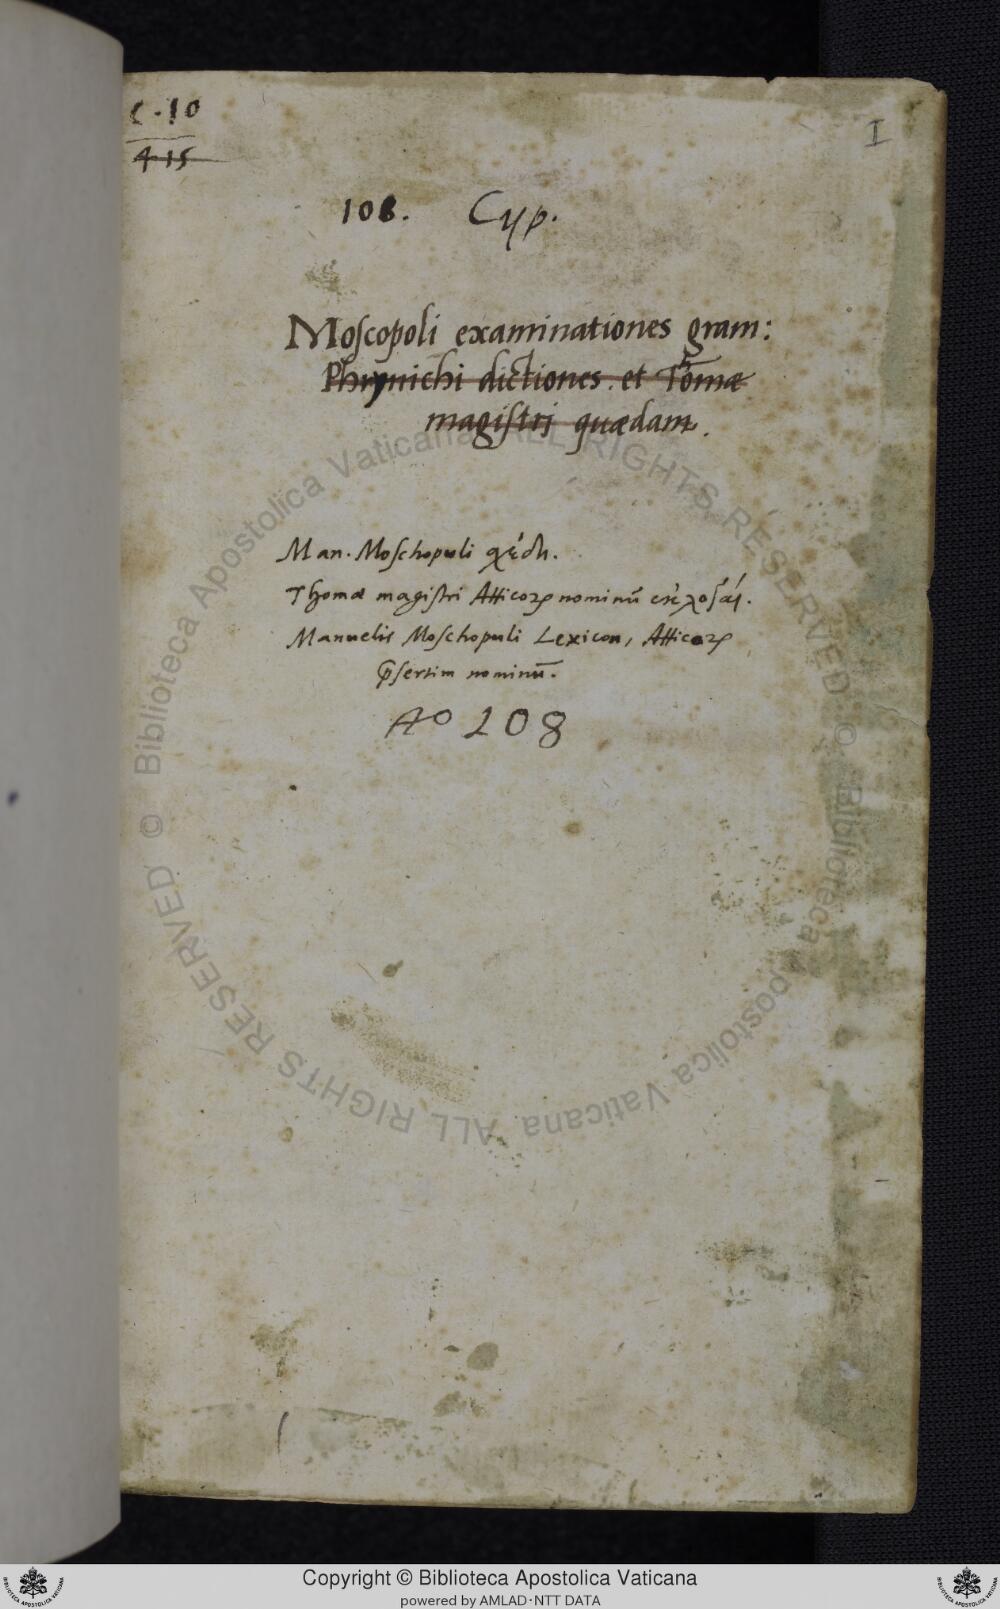 C. 10
415
I
108. Cyp.
Moscopoli examinationes gram:
Phrynichi dictiones. et Thomæ
magistri quædam.
Man. Moschopuli σχέδη.
Thomæ magistri Atticoꝝ nominũ ἐκλογαί.
Manuelis Moschopuli Lexicon, Atticoꝝ
p̃sertim nominũ.
Ao 108
© Biblioteca Apostolica Vaticana ALL RIGHTS RESERVED © Biblioteca Apostolica Vaticana ALL RIGHTS RESERVED
Copyright © Biblioteca Apostolica Vaticana
powered by AMLAD·NTT DATA
BIBLIOTECA APOSTOLICA VATICANA
BIBLIOTECA APOSTOLICA VATICANA